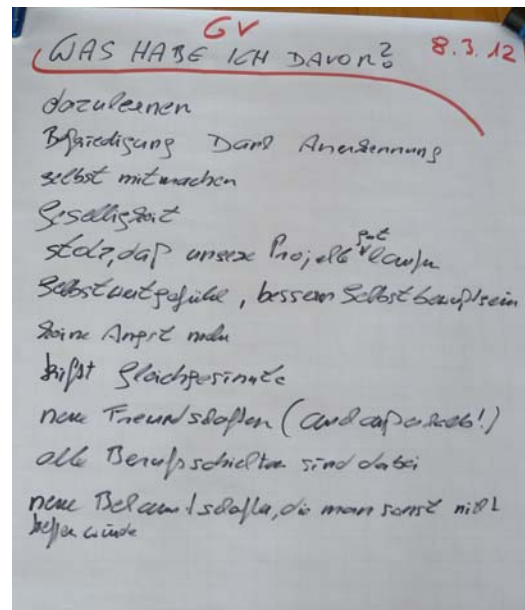 GV
WAS HABE ICH DAVON? 8.3.12
dazulernen
Befriedigung Dank Anerkennung
selbst mitmachen
Geselligkeit
stolz, daß unsere Projekte gut laufen
Selbstwertgefühl, besseres Selbstbewußtsein
keine Angst mehr
trifft Gleichgesinnte
neue Freundschaften (auch außerhalb!)
alle Berufsschichten sind dabei
neue Bekanntschaften, die man sonst nicht
treffen würde